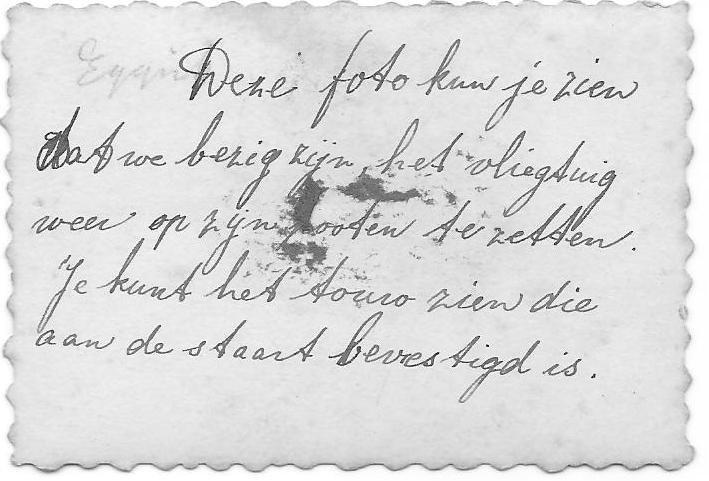 Deze foto kun je zien
dat we bezig zijn het vliegtuig
weer op zijn pooten te zetten.
Je kunt het touw zien die
aan de staart bevestigd is.